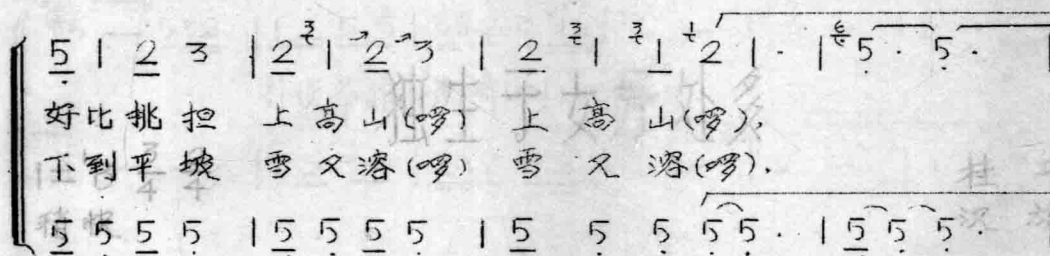 5 | 2 3 | 2 | 2 3 | 2 | 1 2 | · | 5 · 5 ·
好比挑担 上高山(啰) 上高山(啰),
下到平坡 雪又溶(啰) 雪又溶(啰).
5 5 5 5 | 5 5 5 5 | 5 5 5 5 5 · | 5 5 5 ·